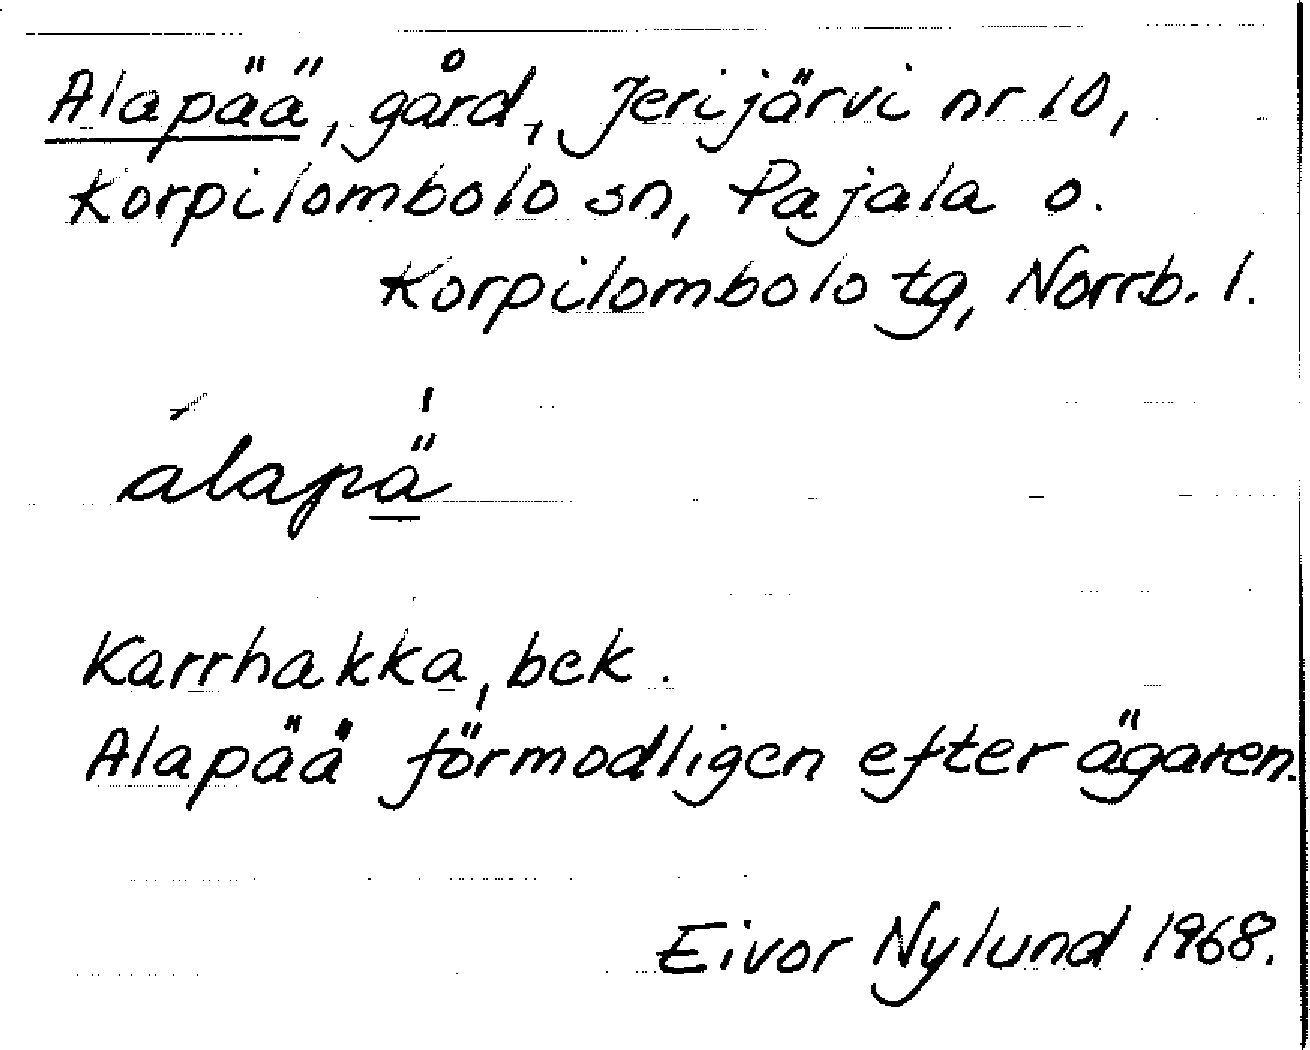 Alapää, gård, Jerijärvi nr 10,
Korpilombolo sn, Pajala o.
Korpilombolo tg, Norrb. l.
álapä̱̍
Karrhakka, bek.
Alapää förmodligen efter ägaren.
Eivor Nylund 1968.